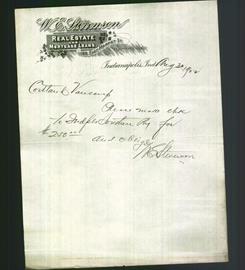 W. E. Stevenson
REAL ESTATE
MORTGAGE LOANS
Indianapolis, Ind. Aug 30 190
Cortland Vancamp
Please make check
to Indpls Southern Ry for
$250.00 and oblige
W E Stevenson